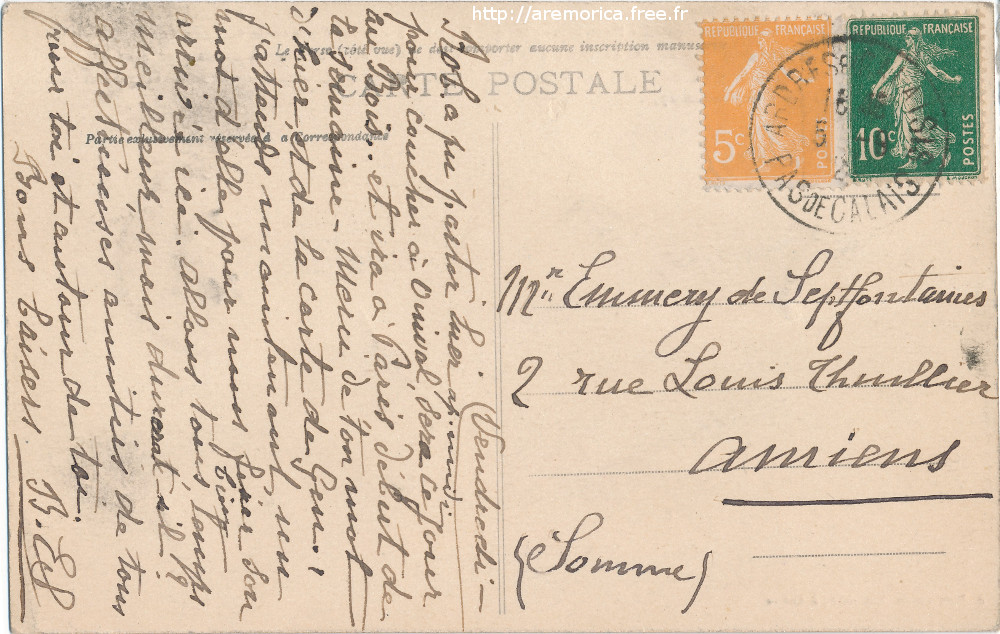 http://aremorica.free.fr
Le verso (côté vue) ne doit comporter aucune inscription manus
CARTE POSTALE
Partie exclusivement réservée à a Correspondance
REPUBLIQUE FRANÇAISE
5c
POSTES
REPUBLIQUE FRANÇAISE
10c
POSTES
ARDRES
PAS DE CALAIS
Vendredi
pu partir hier ap. midi
pour coucher à Onival, sera ce jour
au Bois et ira à Paris début de
la semaine - Merci de ton mot
d'hier, et de la carte de Gen.
J'attends maintenant un
mot d'elle pour nous fixer son
arrivée ici. allons tous, temps
meilleur, mais durerat-il ?
affectueuses amitiés de tous
pour toi et autour de toi.
Bons baisers. B.
Mr Emmery de Septfontaines
2 rue Louis Thuillier
Amiens
(Somme)